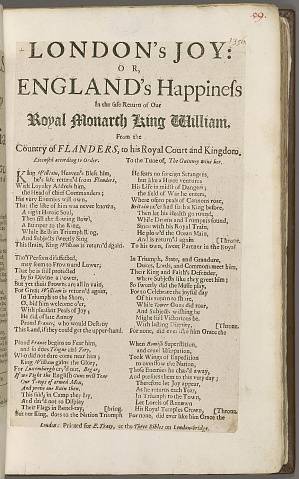 99.
LONDON's JOY:
OR,
ENGLAND's Happiness
In the safe Return of Our
Royal Monarch King William.
From the
Country of FLANDERS, to his Royal Court and Kingdom.
Licensed according to Order.
To the Tune of,
King William, Heaven's Bless him,
he's safe return'd from Flanders,
With Loyalty Address him,
the Head of chief Commanders;
His very Enemies will own,
That the like of him was never known,
A right Heroic Soul,
Then fill the flowing Bowl,
A bumper to the King,
While Bells in Triumph Ring,
And Subjects sweetly Sing
This strain, King William is return'd again.
Tho' Persons dissatisfied,
may seem to Frown and Lower;
That he is still
by his Divine a Power,
But yet those Frowns are all in vain,
For Great William is return'd again,
In Triumph to the Shore,
O, bid him welcome o'er,
With pleasant Peals of Joy;
he did of late Annoy
Proud France, who would Destroy
This Land, if they could get the upper-hand.
Proud France begins to Fear him,
Who did not dare come near him
King William gains the Glory,
For Luxemburgh
If we Fight the English Guns will Tear
Our Troops of armed Men,
And prove our Ruin then,
This said, in Camp they lay,
And dar'd not to Display
Their Flags in Battel-ray,
But our King, does to the Nation Triumph
[bring.
He fears no foreign Strangers,
but like a Hero ventures
His Life in midst of Dangers;
the field of War he enters,
Where often peals of Cannons roar,
But
Then let his Health go round,
While Drums and Trumpets sound,
Since with his Royal Train,
He plow'd the Ocean Main,
And is return'd again
[Throne.
To his own, sweet Partner in the Royal
In Triumph, State, and Grandure,
Dukes, Lords, and Commons meet him,
Their King and Faith's Defender,
where Subjects like they greet him;
So sweetly did the Music play,
For to Celebrate the joyful day
Of his return to shore,
While Tower Guns did roar,
And Subjects wishing he
Might still Victorious be,
With lasting Dignity,
[Throne.
For none, did ever like him Grace the
When Romish Superstition,
and cruel Usurpation,
Took Wings of Expedition
to overflow the Nation,
These Enemies he chas'd away,
And preserves them to this very day;
Therefore let Joy appear,
As he returns each Year,
In Triumph to the Town,
Let Lords of Renown
His Royal Temples Crown,
[Throne.
For none, did ever like him Grace the
London: Printed for E. Tracy, at the Three Bibles on London-bridge.